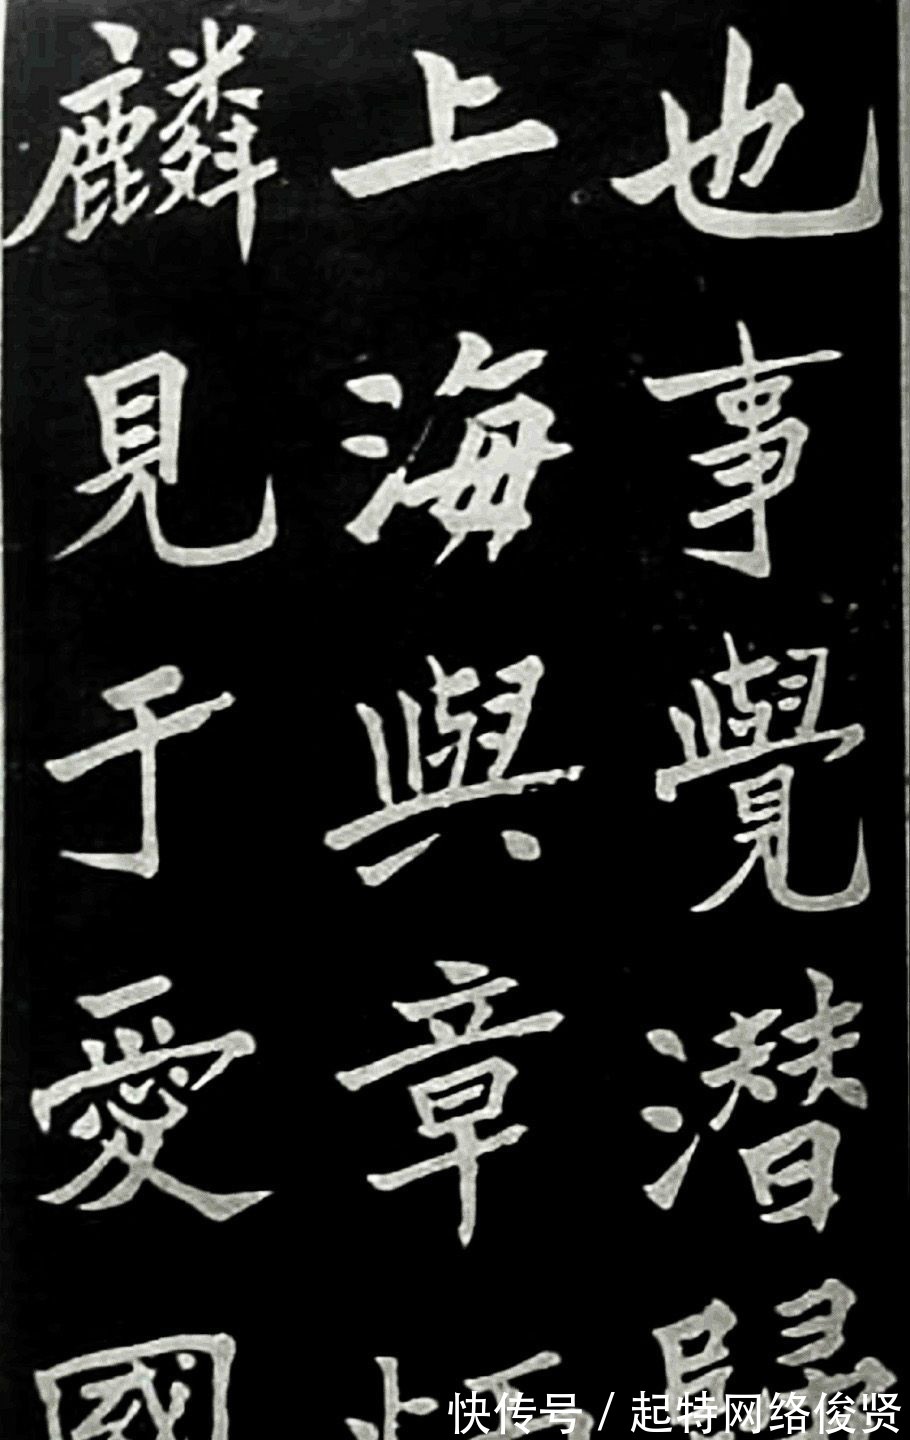 也事覺潜歸
上海與章炳
麟見于愛國
快传号 / 起特网络俊贤